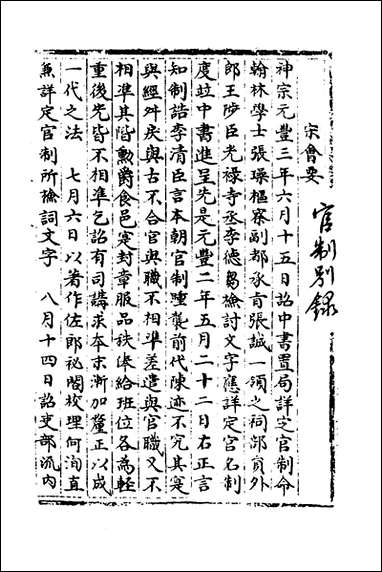 宋會要
官制別錄
神宗元豐三年六月十五日詔中書置局詳定官制命
翰林學士張璪樞密副都承旨張誠一領之祠部員外
郎王陟臣光祿寺丞李德芻檢討文字應詳定官名制
度竝中書進呈先是元豐二年五月二十二日右正言
知制誥李清臣言本朝官制踵襲前代陳迹不究其寔
與經舛戾與古不合官與職不相準差遣與官職又不
相準其階勳爵食邑寔封章服品秩俸給班位各為輕
重後先皆不相準乞詔有司講求本末漸加釐正以成
一代之法　七月六日以著作佐郎祕閣校理何洵直
兼詳定官制所檢詞文字　八月十四日詔吏部流內